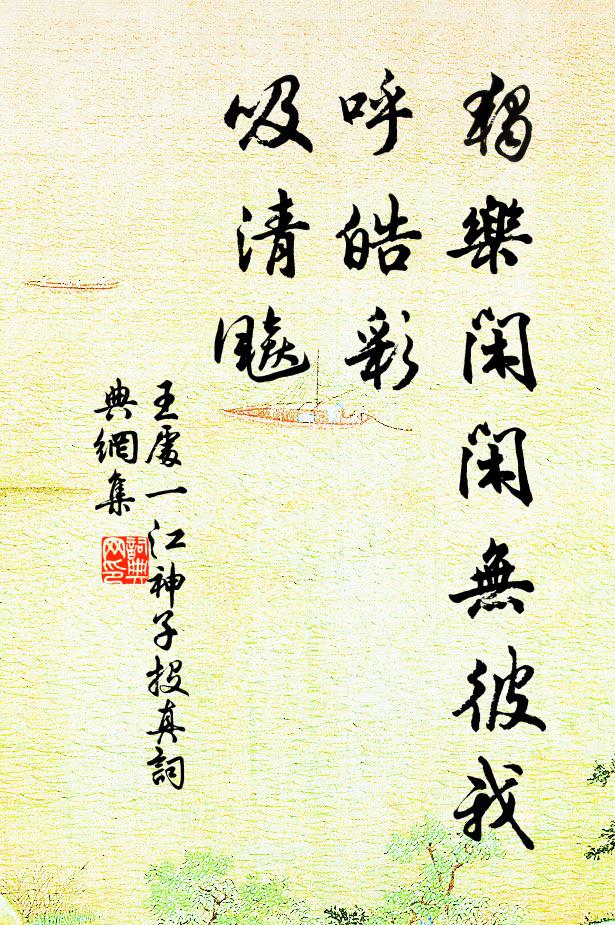 獨樂閑閑無彼我
呼皓彩
吸清飈
王處一江神子投真詞
典網集
詞典
网印